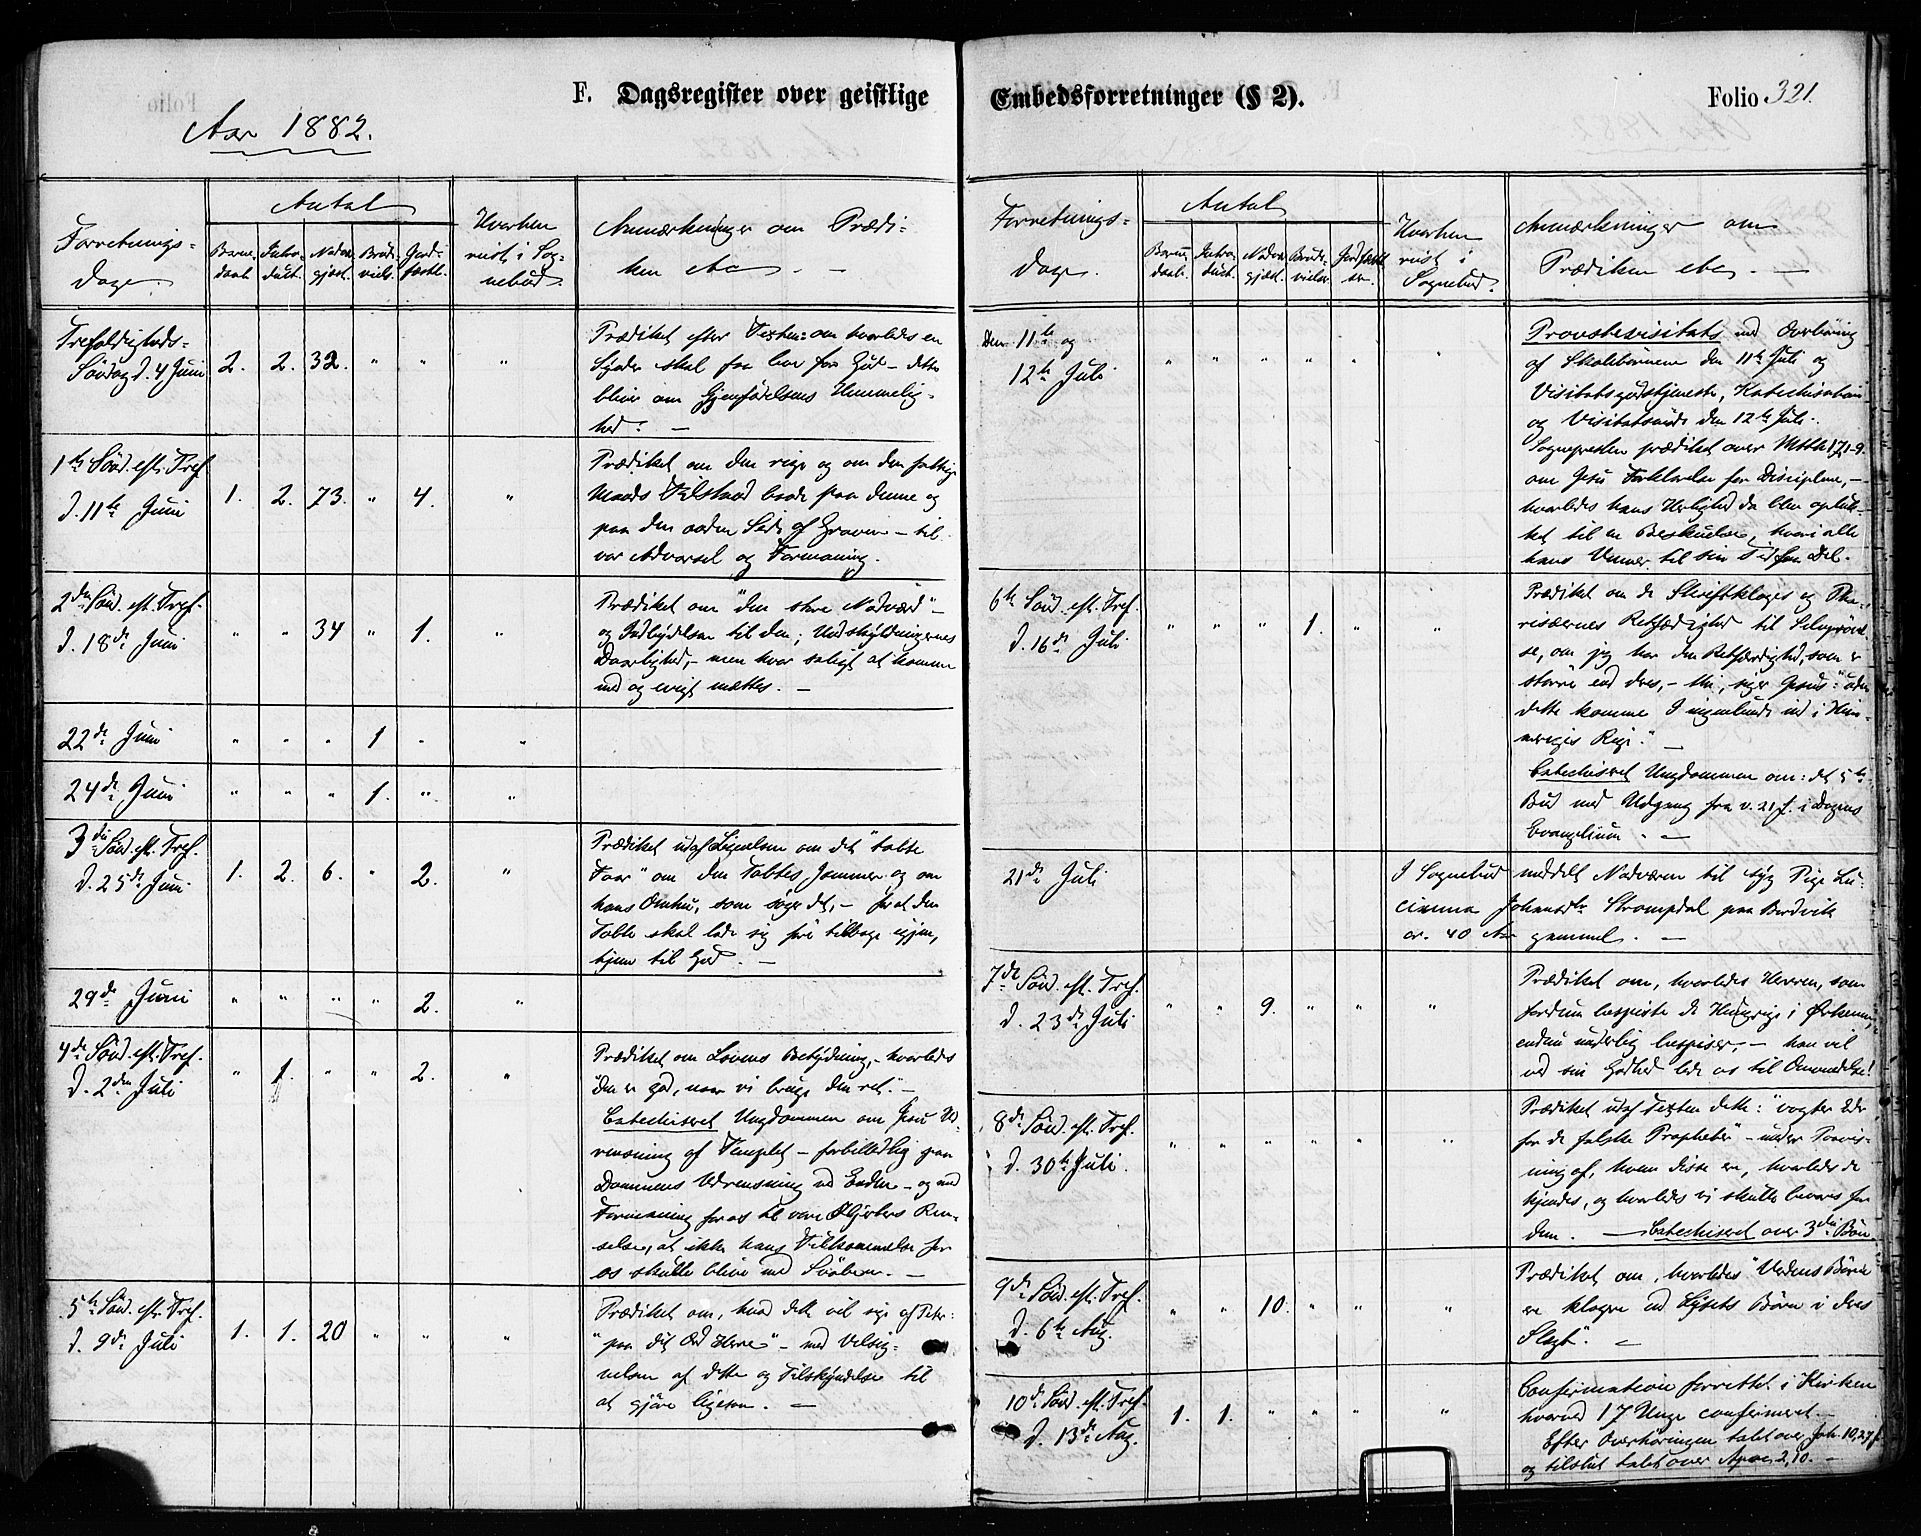 F. Dagsregister over geistlige
Aar 1882.
Forretnings-
dage.
Antal
Barne-
daab.
Introduct.
Nadver-
gjæst.
Brude-
viels.
Jord-
fæstl.
Hvorhen
reist i Sog-
nebud.
Anmærkninger om Prædi-
ken etc. —
Trefoldigheds-
Søndag d. 4 Juni 2. 2. 32. " " "
Prædiket efter Texten: om hvorledes en
Synder skal faa lov for Gud – dette
bliver om Gjenfødelsens Hemmelig-
hed. —
1te Sönd. eft. Tref.
d. 11te Juni 1. 2. 73. " 4. "
Prædiket om den rige og om den fattige
Mands Tilstand baade paa denne og
paa den anden Side af Graven – til
vor Advarsel og Formaning.
2den Sönd. eft. Tref.
d. 18de Juni " " 34 " 1. "
Prædiket om "den store Nadverd" –
og Indbydelsen til den; Undskyldningernes
Daarlighed, – men hvor saligt at komme
med og evigt mættes. —
22de Juni " " " 1 " "
24de Juni " " " 1. " "
3die Sönd. eft. Tref.
d. 25de Juni 1. 2. 6. " 2. "
Prædiket udaf Lignelsen om det "tabte
Faar" om den Tabtes Jammer og om
hans Omhu, som søger det, – for at den
Tabte skal lade sig føre tilbage igjen,
hjem til Gud. —
29de Juni " " " " 2. "
4de Sönd. eft. Tref.
d. 2den Juli " 1. " " 2. "
Prædiket om Lovens Betydning, – hvorledes
"den er god, naar vi bruge den ret." —
Catechiseret Ungdommen om Jesu Ud-
rensning af Templet – forbilledlig paa
Dommens Udrensning ved Enden – og med
Formaning for os til vore Hjerters Ren-
selse, at ikke hans Tilkommelse for
os skulle blive med Svøben. —
5te Sönd. eft. Tref.
d. 9de Juli 1. 1. 20 " " "
Prædiket om, hvad dette vil sige af Peter:
"paa dit Ord Herre" – med Velsig-
nelsen af dette og Tilskyndelse til
at gjøre ligesaa. —
Embedsforretninger (§ 2).
Folio 321.
Forretnings-
dage.
Antal
Barne-
daab.
Introduct.
Nadver-
gjæst.
Brude-
vielser.
Jordfæstel
ser.
Hvorhen
reist i
Sognebud.
Anmærkninger om
Prædiken etc. —
Den 11te og
12te Juli " " " " " "
Provstevisitats med Overhøring
af Skolebørnene den 11te Juli og
Visitatsgudstjeneste, Katechisation
og Visitatsmøde den 12te Juli.
Sognepresten prædiket over Mtth 17,1-9.
om Jesu Forklarelse for Disciplene, –
hvorledes hans Herlighed da blev oplukket
til en Beskuelse, hvori alle
hans Venner til sin Tid faa Del.
6te Sönd. eft. Tref.
d. 16de Juli " " " 1. " "
Prædiket om de Skriftkloges og Pha-
risæernes Retfærdighed til Selvprøvel-
se, om jeg har den Retfærdighed, som er
større end deres, – thi, siger Jesus: "uden
dette komme I ingenlunde ind i Him-
meriges Rige." —
Catechiseret Ungdommen om: det 5te
Bud med Udgang fra v. 21 f. i Dagens
Evangelium. —
21de Juli
I Sognebud meddelt Nadveren til syg Pige Lu-
cianna Johansdtr Strompdal paa Bordvik
cr. 40 Aar gammel. —
7de Sönd. eft. Tref.
d. 23de Juli " " 9. " " "
Prædiket om, hvorledes Herren, som
fordum bespiste de Hungrige i Ørkenen,
endnu underlig bespiser, – han vil
ved sin Godhed lede os til Omvendelse!
8de Sönd. eft. Tref.
d. 30te Juli. " " " " " "
Prædiket udaf Texten dette: "vogter Eder
for de falske Propheter" – under Paavis-
ning af, hvem disse ere, hvorledes de
kjendes, og hvorledes vi skulle bevares for
dem. — Catechiseret over 3die Bøn
9de Sönd. eft. Tref.
d. 6te Aug. " " 10. " " "
Prædiket om, hvorledes "Verdens Børn
ere klogere end Lysets Børn i deres
Slegt." —
10de Sönd. eft. Tref.
d. 13de Aug. 1. 1. " " " "
Confirmation forrettet i Kirken
hvorved 17 Unge confirmeret. —
Efter Overhøringen talet over Joh. 10,27 f.
og tilslut talet over Apoc. 2,10. —